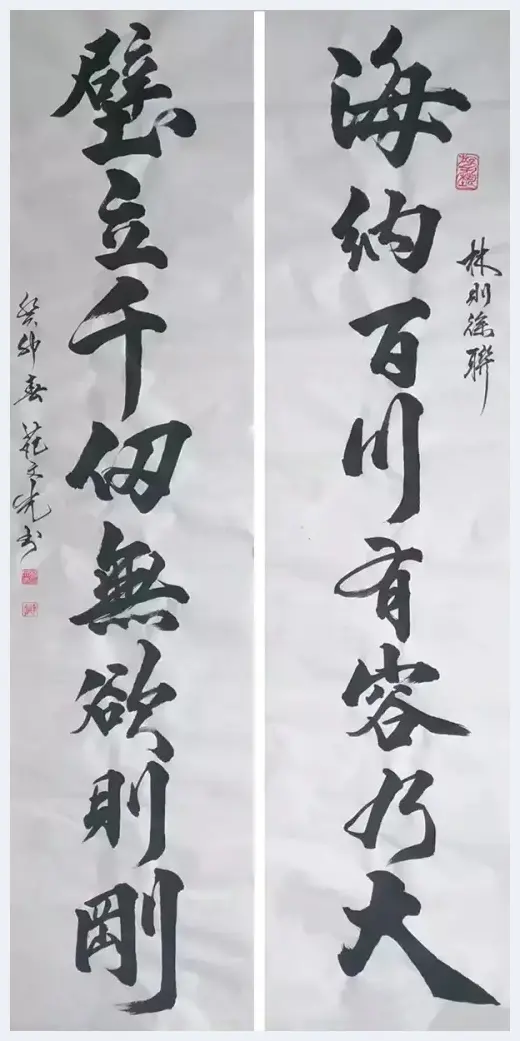 海納百川有容乃大
林則徐聯
壁立千仞無欲則剛
癸卯春 范文光书